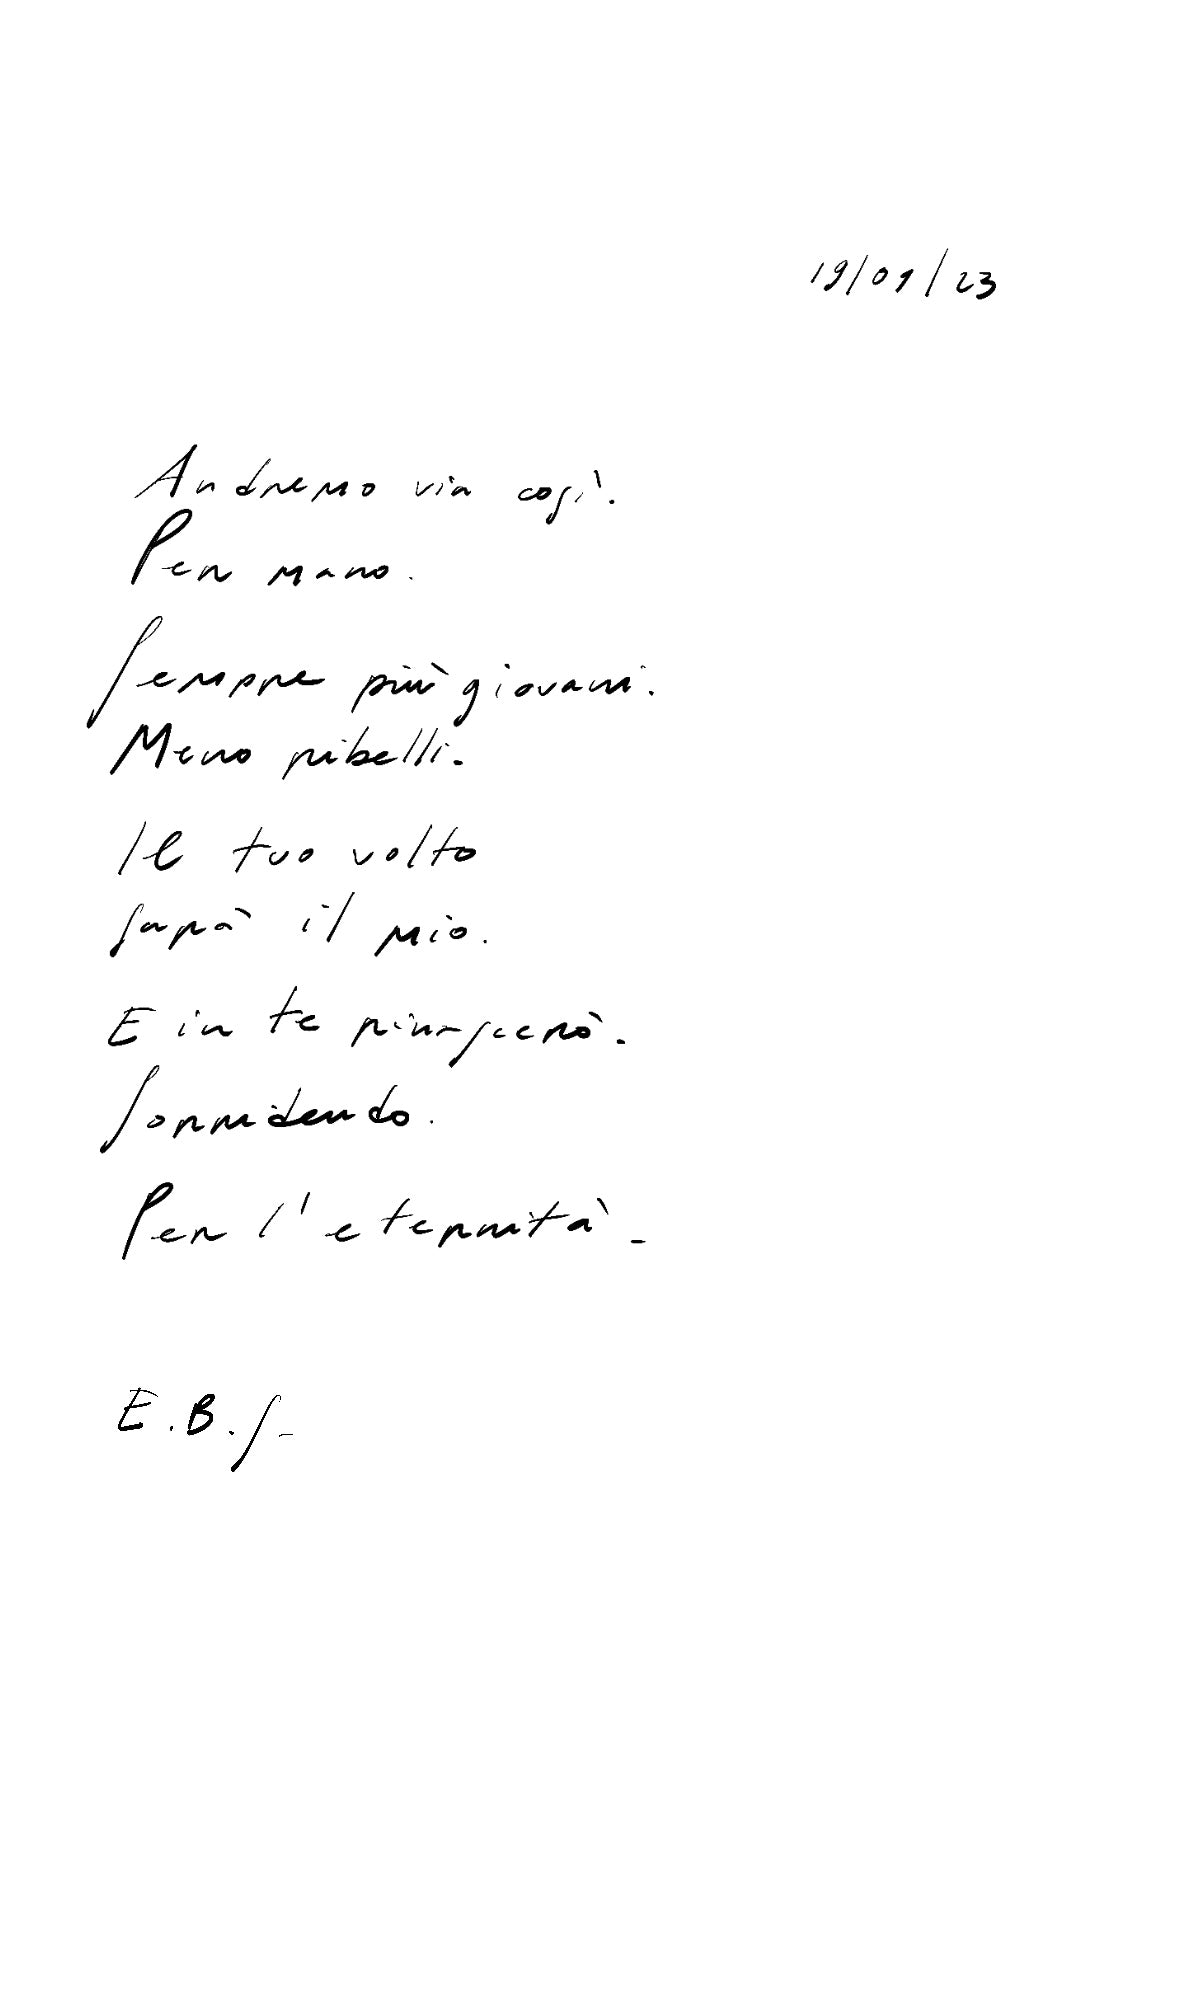 19/01/23
Andremo via così.
Per mano.
Sempre più giovani.
Meno ribelli.
Il tuo volto
sarà il mio.
E in te rinascerò.
Sorridendo.
Per l'eternità.
E.B.S.